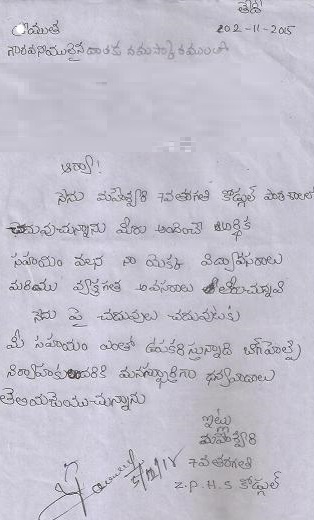 తేది
202-11-2015
గౌరవనీయులైన దాతకు నమస్కారములు
ఆర్యా!
నేను మహేశ్వరి 7వ తరగతి కోడ్గుల్ పాఠశాలలో
చదువుచున్నాను మీరు అందించే ఆర్థిక
సహాయం వలన నా యొక్క విద్యావసరాలు
మరియు వ్యక్తిగత అవసరాలు తీరుచున్నవి
నేను పై చదువులు చదువుటకు
మీ సహాయం ఎంతో ఉపకరిస్తున్నాది
నిర్వాహకులందరికి మనస్ఫూర్తిగా ధన్యవాదాలు
తెలియజేయుచున్నాను
ఇట్లు
మహేశ్వరి
7వ తరగతి
Z.P.H.S కోడ్గుల్